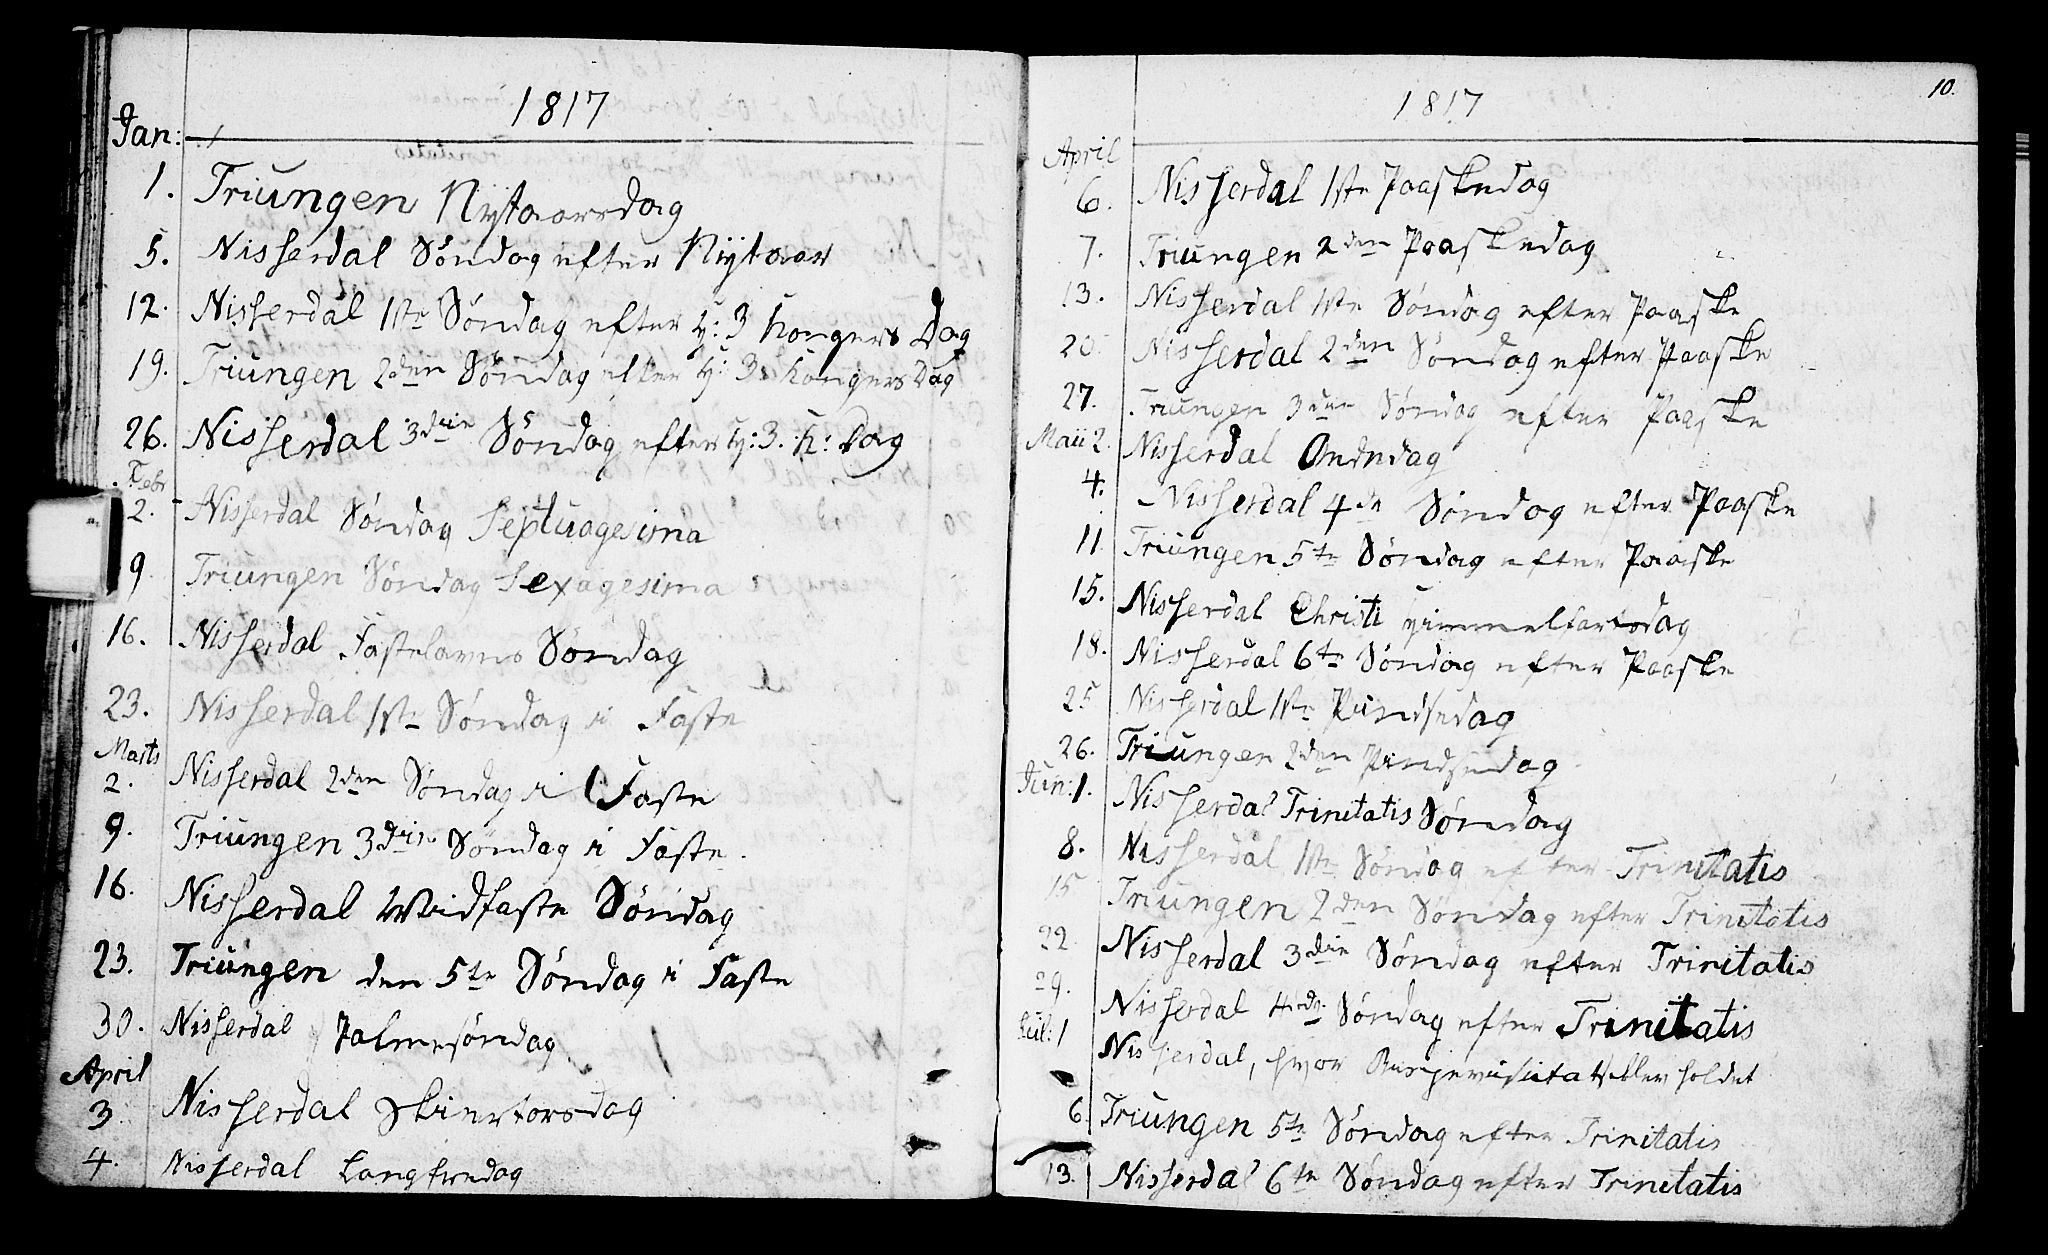 1817
Jan:
1. Triungen Nÿtaarsdag
5. Nisserdal Søndag efter Nÿtaar
12. Nisserdal 1ste Søndag efter H: 3 Kongers Dag
19. Triungen 2den Søndag efter H: 3 Kongers Dag
26. Nisserdal 3die Søndag efter H: 3. K: Dag
Febr
2. Nisserdal Søndag Septuagesima
9 Triungen Søndag Sexagesima
16. Nisserdal Fastelavns Søndag
23. Nisserdal 1ste Søndag i Faste
Marts
2. Nisserdal 2den Søndag i Faste
9. Triungen 3die Søndag i Faste.
16. Nisserdal Midfaste Søndag
23. Triungen den 5te Søndag i Faste
30. Nisserdal Palmesøndag
April
3. Nisserdal Skiertorsdag
4. Nisserdal Langfredag
10.
1817
April
6. Nisserdal 1ste Paaskedag
7. Triungen 2den Paaskedag
13. Nisserdal 1ste Søndag efter Paaske
20 Nisserdal 2den Søndag efter Paaske
27. Triungen 3die Søndag efter Paaske
Maii 2. Nisserdal Bededag
4. Nisserdal 4de Søndag efter Paaske
11 Triungen 5te Søndag efter Paaske
15. Nisserdal Christi Himmelfartsdag
18. Nisserdal 6te Søndag efter Paaske
25 Nisserdal 1ste Pindsedag
26. Triungen 2den Pindsedag
Jun: 1. Nisserdal Trinitatis Søndag
8. Nisserdal 1ste Søndag efter Trinitatis
15 Triungen 2den Søndag efter Trinitatis
22. Nisserdal 3die Søndag efter Trinitatis
29. Nisserdal 4rde Søndag efter Trinitatis
Jul: 1 Nisserdal, hvor Bispevisitats blev holdet
6. Triungen 5te Søndag efter Trinitatis
13. Nisserdal 6te Søndag efter Trinitatis